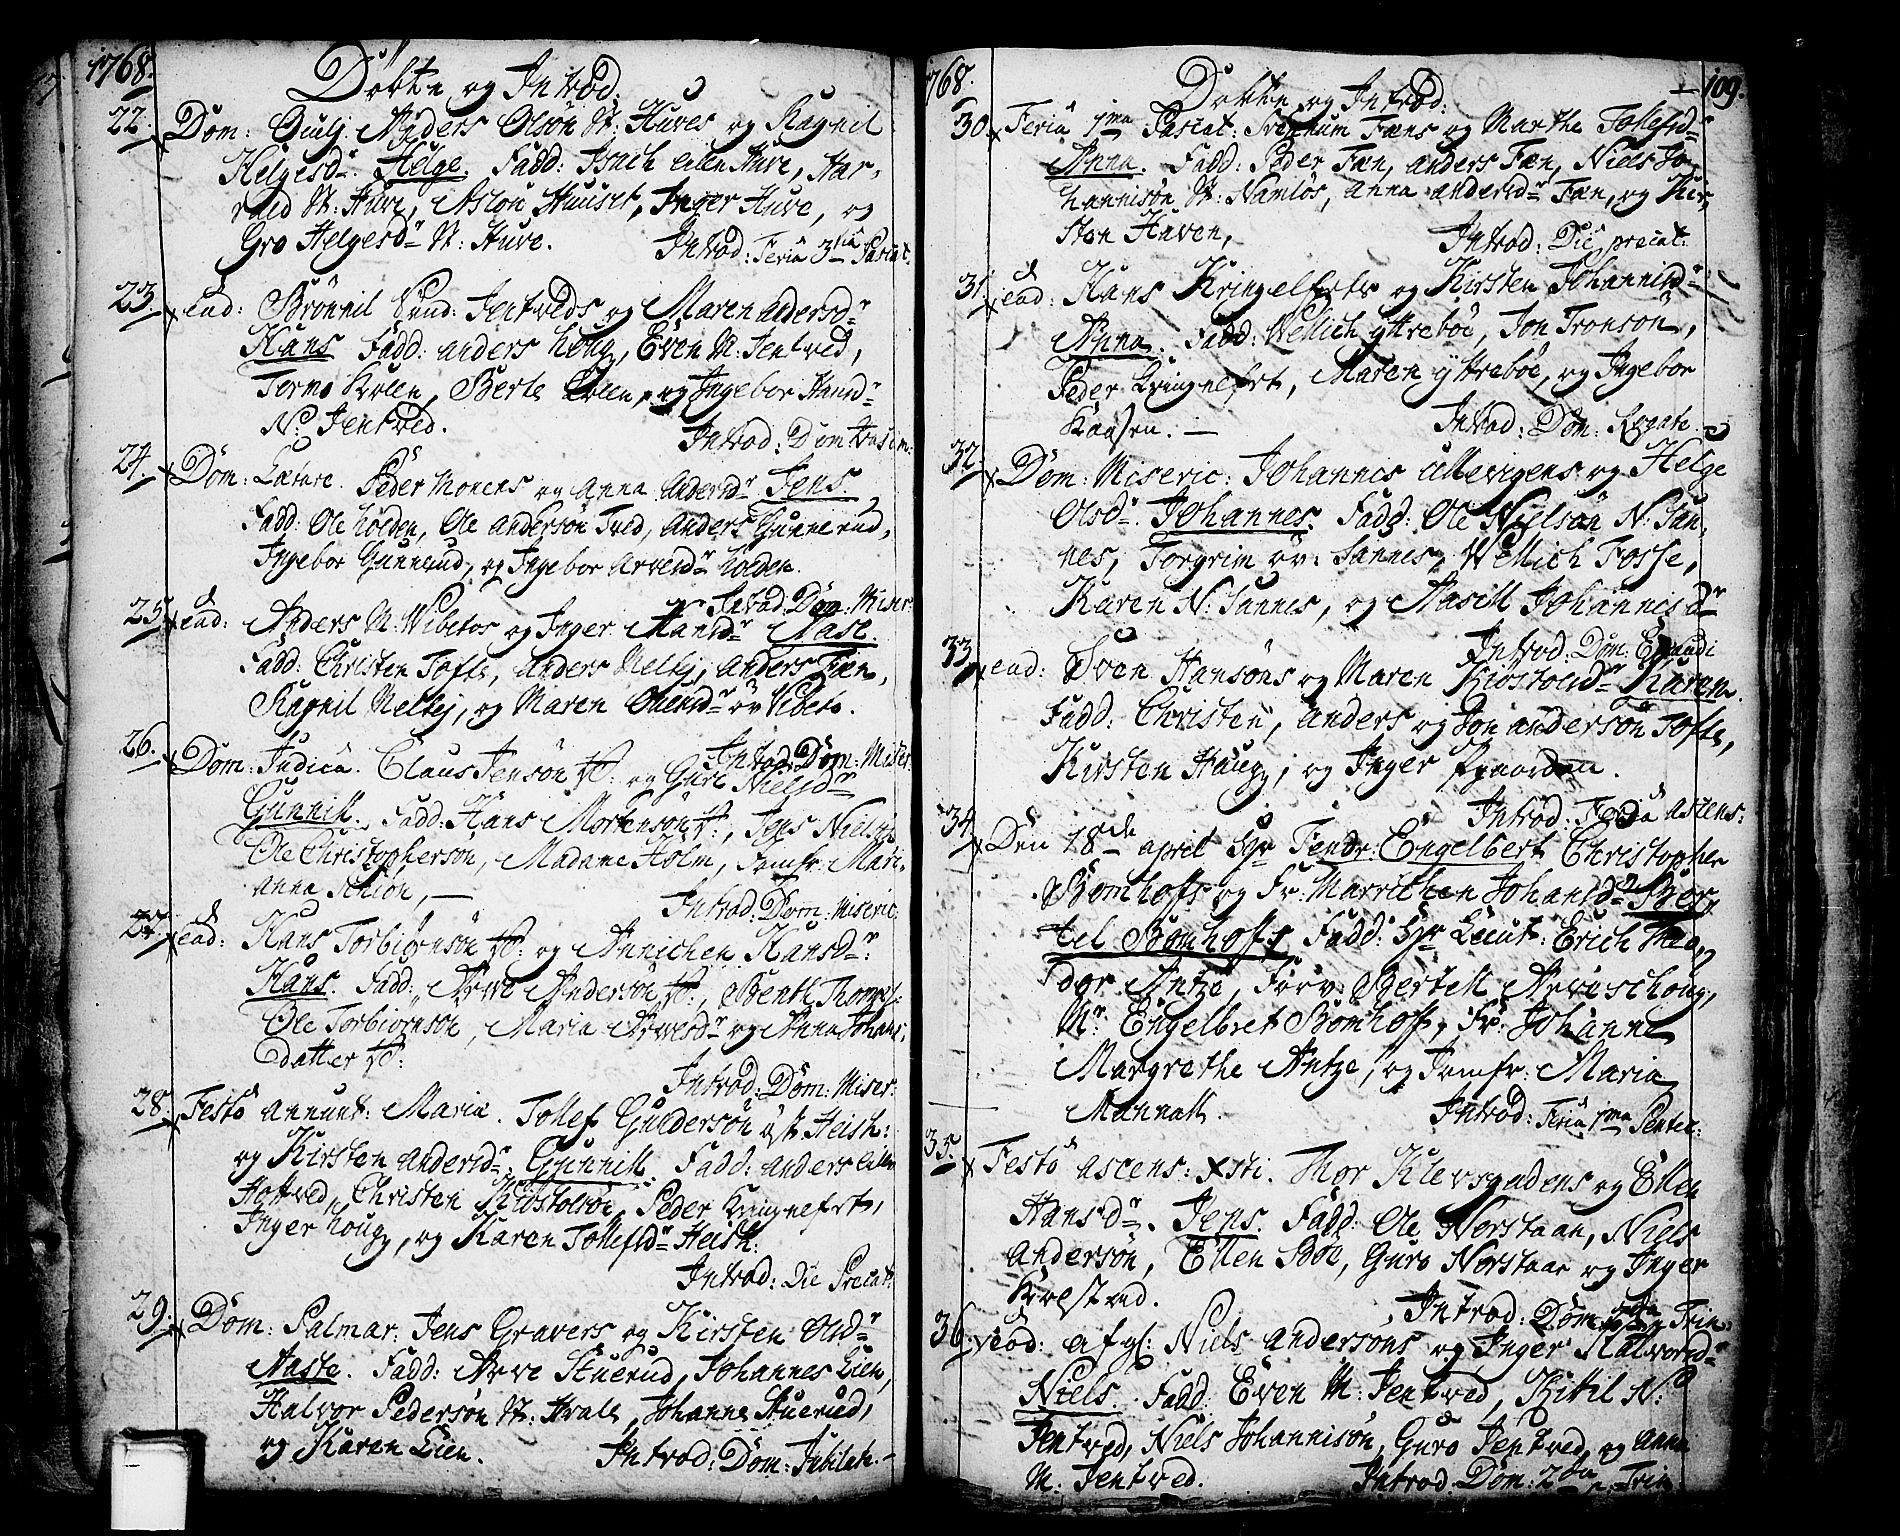 1768.
Døbte og Introd.
22. Dom: Oculj. Anders Olsøn N: Huves og Ragnil
Helgesd: Helge. Fadd: Isach eilen Huve, Har-
rald N: Huve, Aslou Huuset, Inger Huve, og
Gro Helgesdr N: Huve. Introd: Feria 3tia Pascat.
23. ead: Brønnil Sund: Jentveds og Maren Andersdr
Hans Fadd: Anders houg, Even M: Jentved,
Tormo Hvlen, Berte Hvlen, og Ingebor Hansdr
N: Jentved. Introd: Dom
24. Dom: Lætare. Peder Monens og Anna Andersdr Jens
Fadd: Ole holden, Ole Andersøn Tved, Anders Gunnerud,
Ingebor Gunnerud, og Ingebor Arvesdr holden.
Introd: Dom: Miser:
25. ead: Anders N: Vibetos og Inger Hansdr Aase.
Fadd: Christen Tofte, Anders Melbÿ, Anders Fæn,
Ragnil Melbÿ, og Maren Olensdr øv Vibeto.
Introd: Dom: Miser
26. Dom: Judica. Claus Jensøn og Guri Nielsdr
Gunnill. Fadd: Hans Mortensøn, Jens Nielsøn
Ole Christophersøn, Madame Holm, Jomfr: Mari-
anna Schiøn, — Introd: Dom: Miseric:
27. ead: Hans Torbiørnsøn og Annichen Hansdr:
Hans. Fadd: Arve Andersøn, Benth Thomes:
Ole Torbiørnsøn, Maria Arvesdr og Anna Johans
datter
Introd: Dom: Miser:
28. Festo Annunt: Mariæ. Tollef Gundersøn øst Heish:
og Kirsten Andersdr: Gunnill. Fadd: Anders eilen
Hottved, Christen Kiøstolsøn, Peder Kringlefrt,
Inger houg, og Karen Tollefsdr Heish:
Introd: Die Precat:
29. Dom: Palmar: Jens Gravers og Kirsten Olsdr
Aaste. Fadd: Arve Stuerud, Johannes Lien,
Halvor Pedersøn N: Hvale, Johanne Stuerud,
og Karen Lien. Introd: Dom: Jubilate. -
1768.
109.
Døbte og Introd:
30 Feria 1ma Pascat: Svennum Fæns og Marthe Tollefsd:
Anna. Fadd: Peder Fæn, Anders Fæn, Niels Jo-
hannisøn N: Namløs, Anna Andersdr Fæn, og Kir-
sten Huven, Introd: Die precat:
31. ead: Hans Kringelfrts og Kirsten Johannisd:
Anna. Fadd: Wellich ÿttrebøe, Jon Tronsøn,
Peder Kringlefrt, Maren ÿttrebøe, og Ingebor
Kaasen. — Introd: Dom: Rogate.
32. Dom: Miseric: Johannis Ullevigens og Helge
Olsd: Johannes. Fadd: Ole Nielsøn N: San-
nes, Torgrim øv: Sannes, Wellich Fosse,
Karen N: Sannes, og Aasill Johannisdr
Introd: Dom: Exaudi
33. ead: Even Hansøns og Maren Kiøstolsdr Karen.
Fadd: Christen, Anders og Jon Andersøn Tofte,
Kirsten Haug, og Inger
Introd: Feria Ascens:
34. Den 18de april Hr Fendr: Engelbert Christopher
Bomhoffs og Fr: Marrichen Johansdr Ber-
tel Bomhoff Fadd: Hr Lieut: Erich Theo-
dor Antze, Forv: Bertell Arvischoug,
Mr: Engelbret Bomhoff, Fr: Johanne
Margrethe Antze, og Jomfr: Maria
Mannall. Introd: Feria 1ma Pentec:
35. Festo Ascens: Xsti. Thor Klevsgadens og Ellen
Hansdr. Jens. Fadd: Ole Norstaan, Niels
Andersøn, Ellen Bøe, Guro Norstaan og Inger
Introd: Dom: Trin:
36. ead: af gl: Niels Andersøns og Inger Halvorsdr
Niels. Fadd: Even M: Jentved, Kittil N:
Jentved, Niels Johannisøn, Guro Jentved, og Anne
M: Jentved. Introd: Dom: 2da Trin